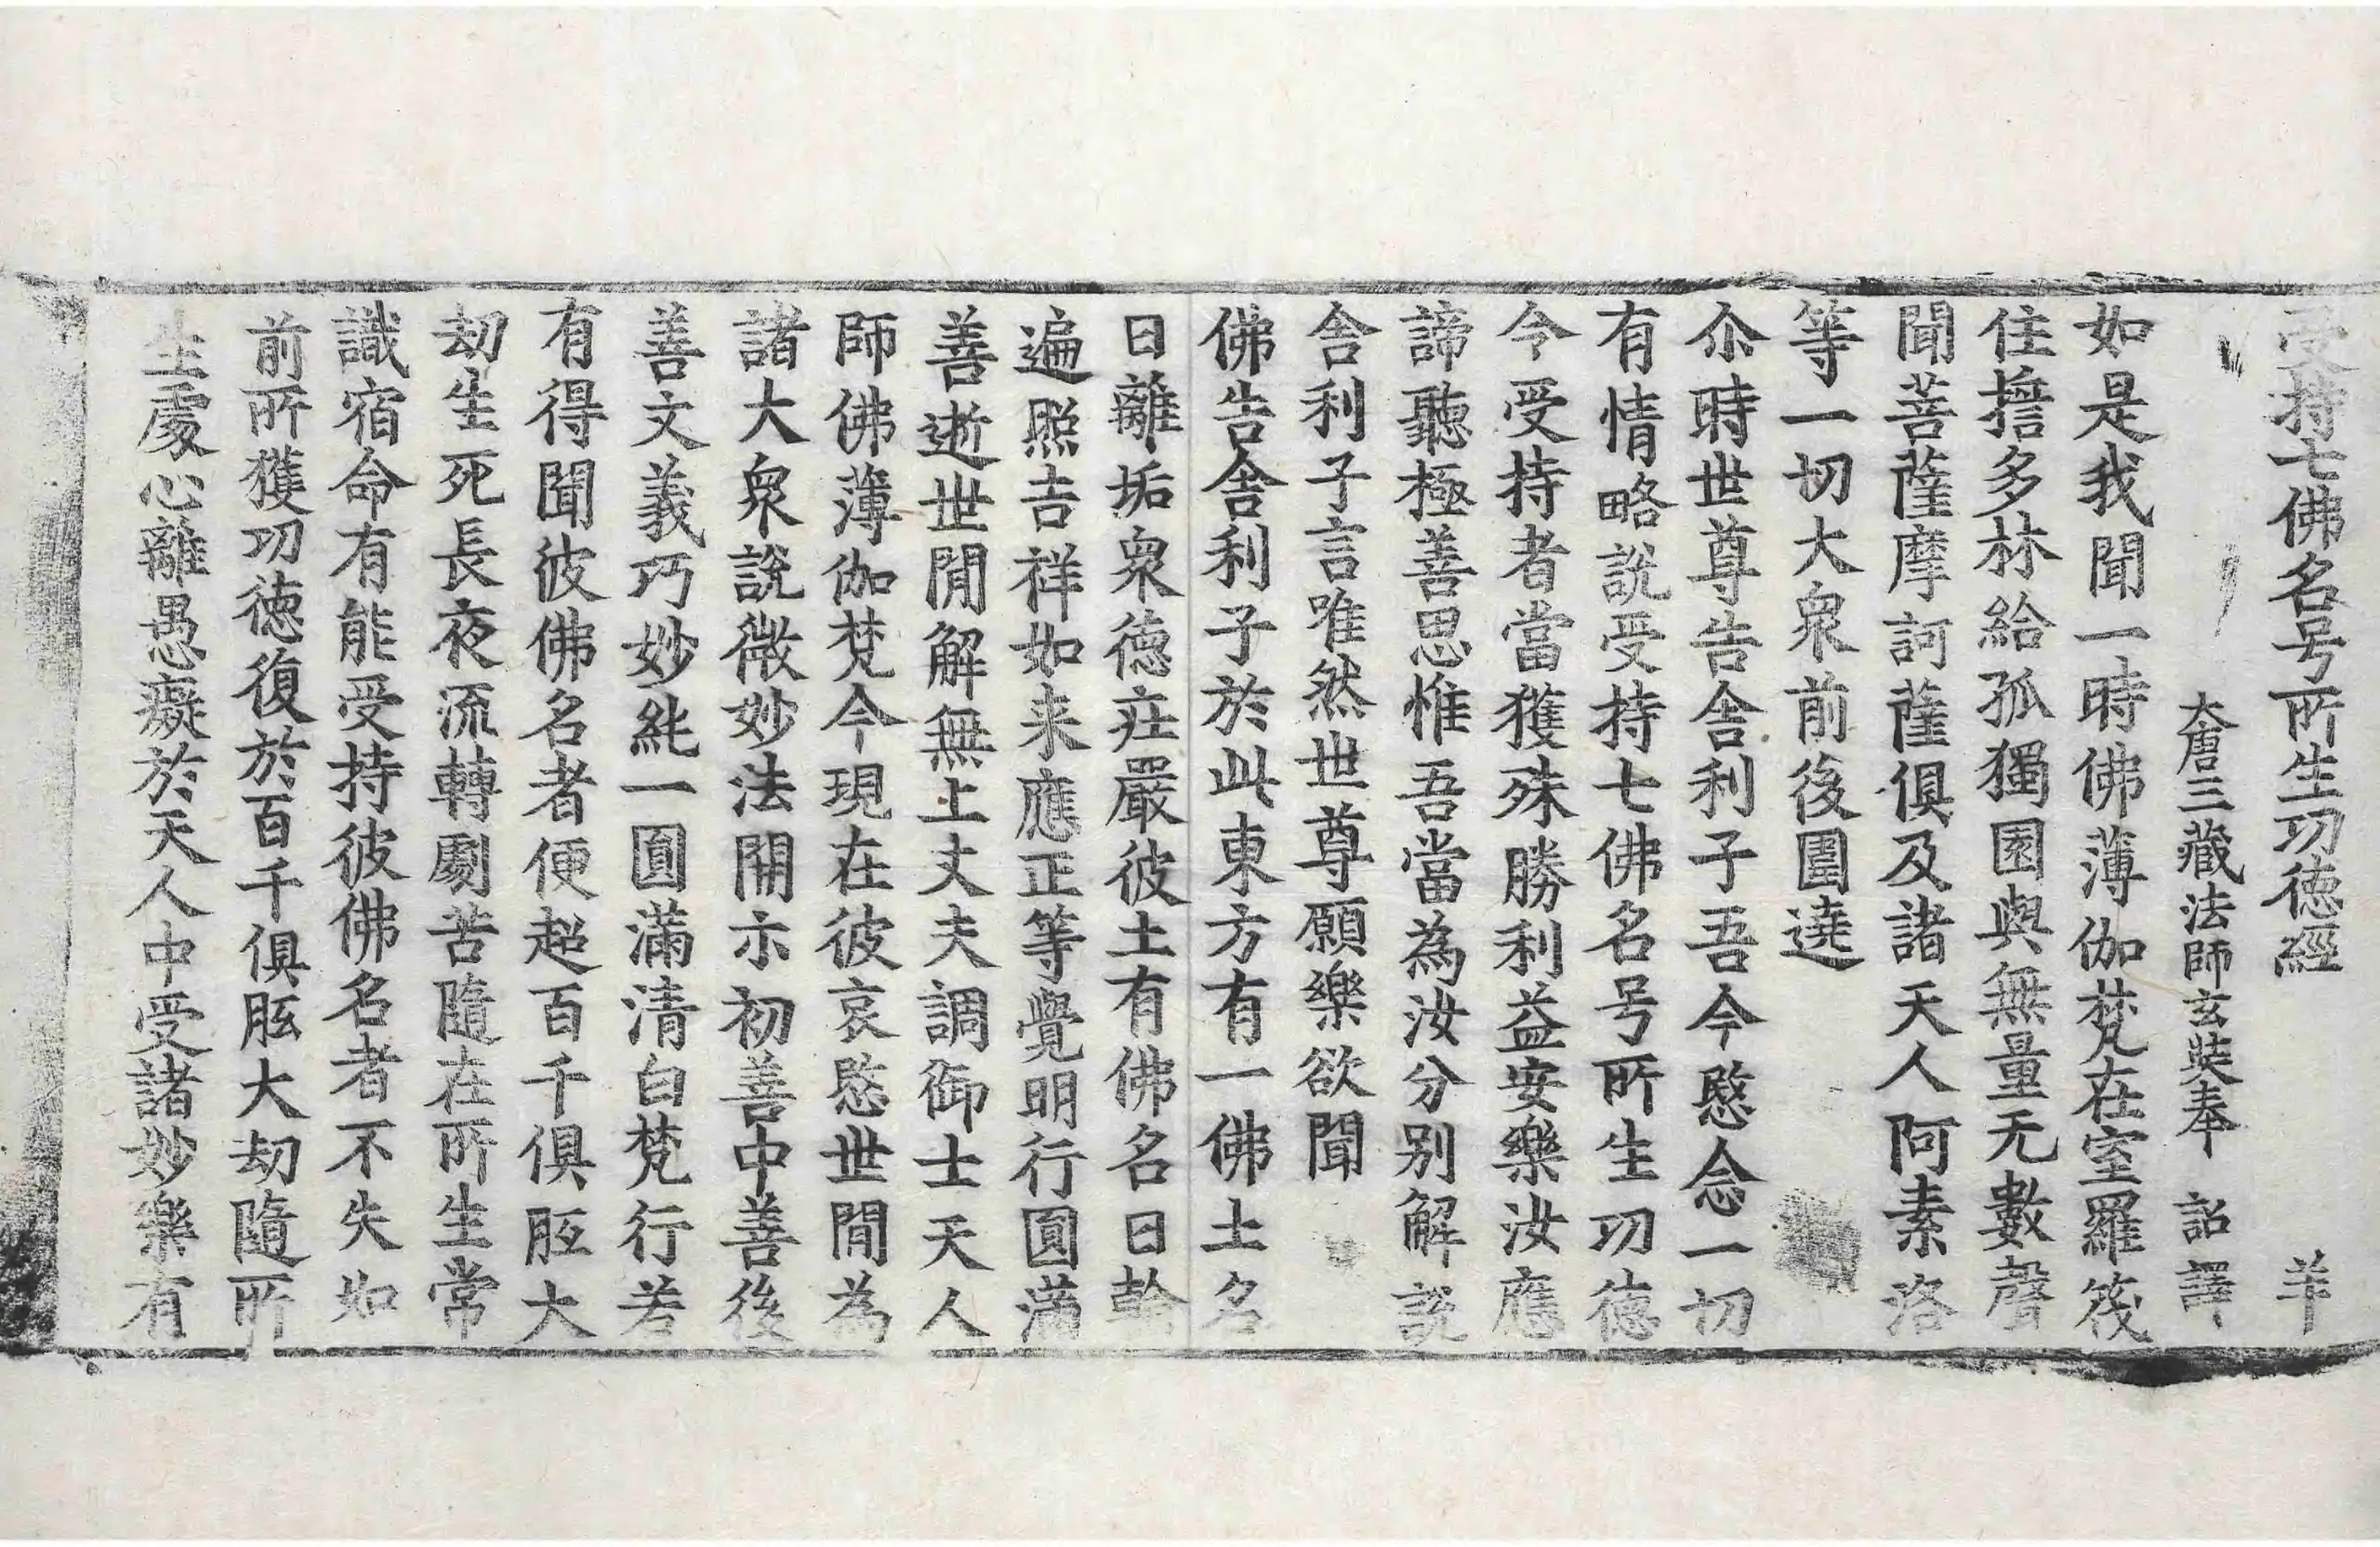 受持七佛名号所生功德經 羊
大唐三藏法師玄奘奉 詔譯
如是我聞一時佛薄伽梵在室羅筏
住擔多林給孤獨園與無量无數聲
聞菩薩摩訶薩俱及諸天人阿素洛
等一切大衆前後圍遶
尒時世尊告舍利子吾今愍念一切
有情略說受持七佛名号所生功德
今受持者當獲殊勝利益安樂汝應
諦聽極善思惟吾當為汝分別解說
舍利子言唯然世尊願樂欲聞
佛告舍利子於此東方有一佛土名
曰離垢衆德莊嚴彼土有佛名曰輪
遍照吉祥如来應正等覺明行圓滿
善逝世閒解無上丈夫調御士天人
師佛薄伽梵今現在彼哀愍世閒為
諸大衆說微妙法開示初善中善後
善文義巧妙純一圓滿清白梵行若
有得聞彼佛名者便超百千俱胝大
劫生死長夜流轉劇苦隨在所生常
識宿命有能受持彼佛名者不失如
前所獲功德復於百千俱胝大劫隨所
生處心離愚癡於天人中受諸妙樂有